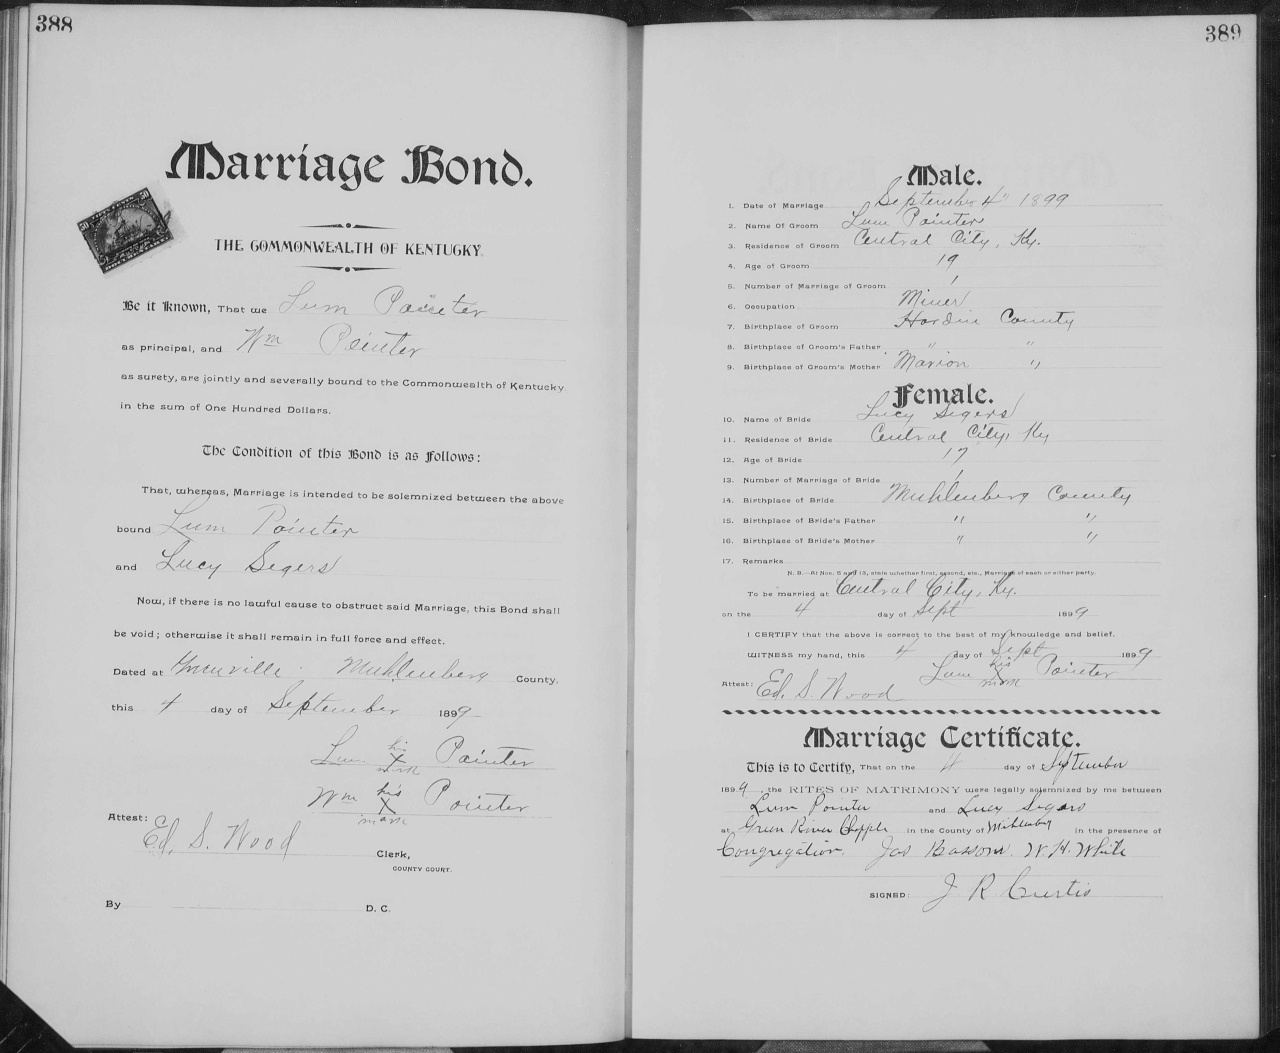 388
Marriage Bond.
THE COMMONWEALTH OF KENTUCKY.
Be it Known, That we Lum Pointer
as principal, and Wm Pointer
as surety, are jointly and severally bound to the Commonwealth of Kentucky
in the sum of One Hundred Dollars.
The Condition of this Bond is as Follows:
That, whereas, Marriage is intended to be solemnized between the above
bound Lum Pointer
and Lucy Segers
Now, if there is no lawful cause to obstruct said Marriage, this Bond shall
be void; otherwise it shall remain in full force and effect.
Dated at Greenville Muhlenberg County,
this 4 day of September 1899
Lum his X mark Pointer
Wm his X mark Pointer
Attest: Ed. S. Wood
Clerk,
COUNTY COURT.
By D. C.
389
Male.
1. Date of Marriage September 4" 1899
2. Name Of Groom Lum Pointer
3. Residence of Groom Central City, Ky.
4. Age of Groom 19
5. Number of Marriage of Groom 1
6. Occupation Miner
7. Birthplace of Groom Hardin County
8. Birthplace of Groom's Father " "
9. Birthplace of Groom's Mother Marion "
Female.
10. Name of Bride Lucy Segers
11. Residence of Bride Central City, Ky
12. Age of Bride 17
13. Number of Marriage of Bride 1
14. Birthplace of Bride Muhlenberg County
15. Birthplace of Bride's Father " "
16. Birthplace of Bride's Mother " "
17. Remarks
N. B.—At Nos. 5 and 13, state whether first, second, etc., Marriage of each or either party.
To be married at Central City, Ky.
on the 4 day of Sept 1899
I CERTIFY that the above is correct to the best of my knowledge and belief.
WITNESS my hand, this 4 day of Sept 1899
Lum his X mark Pointer
Attest: Ed. S. Wood
Marriage Certificate.
This is to Certify, That on the 4 day of September
1899, the RITES OF MATRIMONY were legally solemnized by me between
Lum Pointer and Lucy Segars
at Green River Chapple in the County of Muhlenberg in the presence of
Congregation. Jas W. H. White
SIGNED: J R Curtis